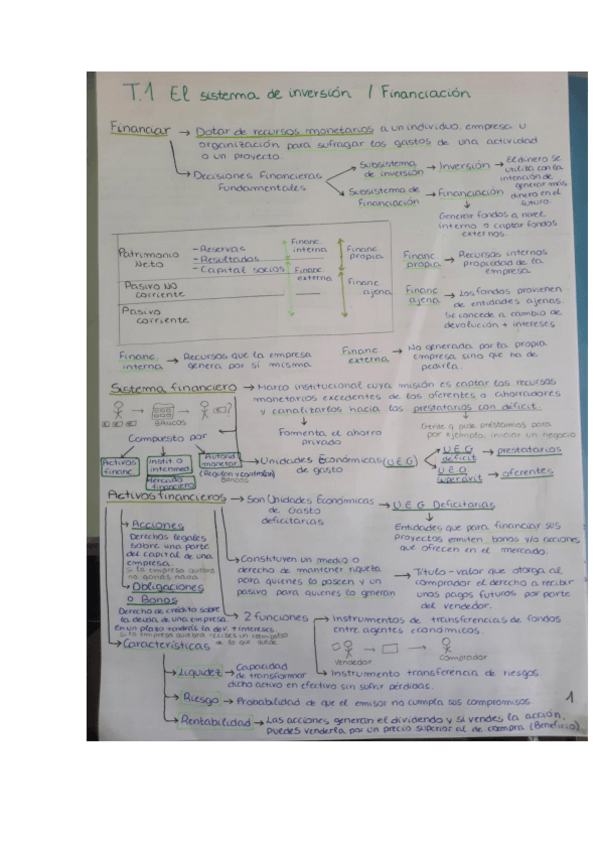 T.1 El sistema de inversión / Financiación
Financiar → Dotar de recursos monetarios a un individuo, empresa u
organización para sufragar los gastos de una actividad
o un proyecto.
→ Decisiones Financieras
Fundamentales
Subsistema
de inversión → Inversión → El dinero se
utiliza con la
intención de
generar más
dinero en el
futuro.
Subsistema de
Financiación → Financiación
Generar fondos a nivel
interno o captar fondos
externos.
Patrimonio
Neto
- Reservas
- Resultados
- Capital socios
Financ
interna
Financ
externa
Financ
propia
Financ
ajena
Pasivo NO
corriente
Pasivo
corriente
Financ
propia → Recursos internos
propiedad de la
empresa
Financ
ajena → Los fondos provienen
de entidades ajenas.
Se concede a cambio de
devolución + intereses
Financ.
interna → Recursos que la empresa
genera por sí misma
Financ
externa → No generada por la propia
empresa sino que ha de
pedirla.
Sistema financiero → Marco institucional cuya misión es captar los recursos
monetarios excedentes de los oferentes o ahorradores
y canalizarlos hacia los prestatarios con déficit.
BANCOS
Compuesto por
Fomenta el ahorro
privado
Gente q pide préstamos para
por ejemplo, iniciar un negocio
Activos
financ.
Instit. o
intermed.
Mercado
financiero
Autorid
monetar.
(Regulan y controlan)
Bancos
→ Unidades Económicas (U.E.G)
de gasto
U.E.G
deficit → prestatarios
U.E.G
superavit → oferentes
Activos financieros → Son Unidades Económicas
de Gasto
deficitarias
→ U.E.G Deficitarias
Entidades que para financiar sus
proyectos emiten bonos y/o acciones
que ofrecen en el mercado.
→ Acciones
Derechos legales
sobre una parte
del capital de una
empresa.
→ Obligaciones
o Bonos
Derecho de crédito sobre
la deuda de una empresa.
→ Constituyen un medio o
derecho de mantener riqueza
para quienes lo poseen y un
pasivo para quienes lo generan
→ Título-valor que otorga al
comprador el derecho a recibir
unos pagos futuros por parte
del vendedor.
→ 2 funciones
→ Instrumentos de transferencias de fondos
entre agentes económicos.
vendedor
comprador
→ Instrumento transferencia de riesgos.
→ Características
→ Liquidez → Capacidad
de transformar
dicho activo en efectivo sin sufrir pérdidas.
→ Riesgo → Probabilidad de que el emisor no cumpla sus compromisos
→ Rentabilidad → Las acciones generan el dividendo y si vendes la acción,
puedes venderla por un precio superior al de compra (Beneficio)
1